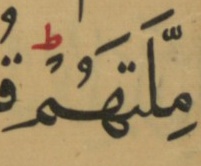 مِلَّتَهُمْ ؕ